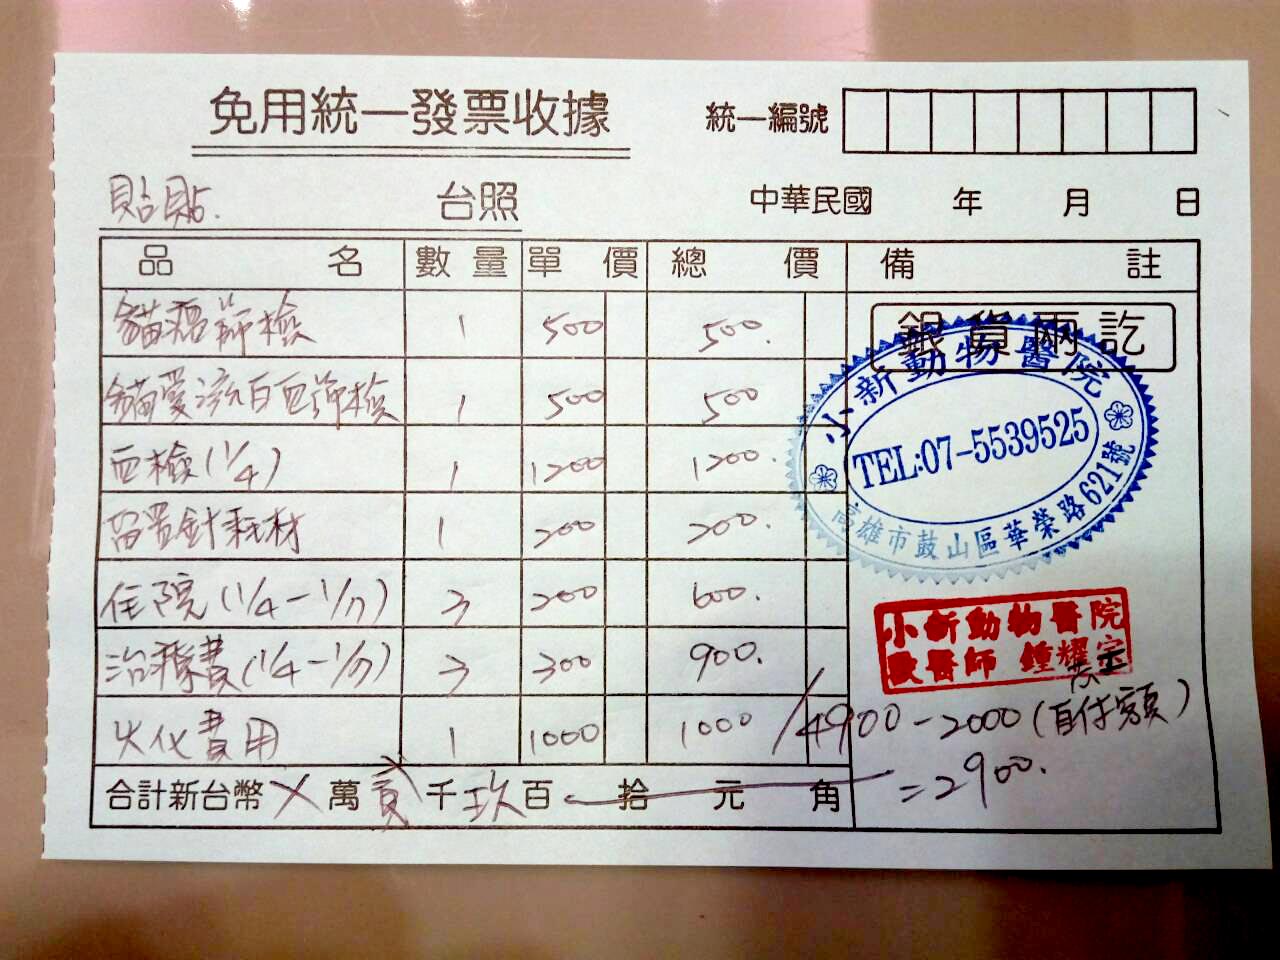 免用統一發票收據
統一編號
貼貼. 台照
中華民國 年 月 日
品名 數量 單價 總價 備註
貓瘟篩檢 1 500 500.
貓愛滋白血篩檢 1 500 500
血檢(1/4) 1 1200 1200.
留置針耗材 1 200 200.
住院(1/4-1/7) 3 200 600.
治療費(1/4-1/7) 3 300 900.
火化費用 1 1000 1000 /4900-2000(自付額)
=2900.
合計新台幣 萬 貳 千 玖 百 拾 元 角
銀貨兩訖
小新動物醫院
TEL:07-5539525
高雄市鼓山區華榮路621號
小新動物醫院
獸醫師 鍾耀